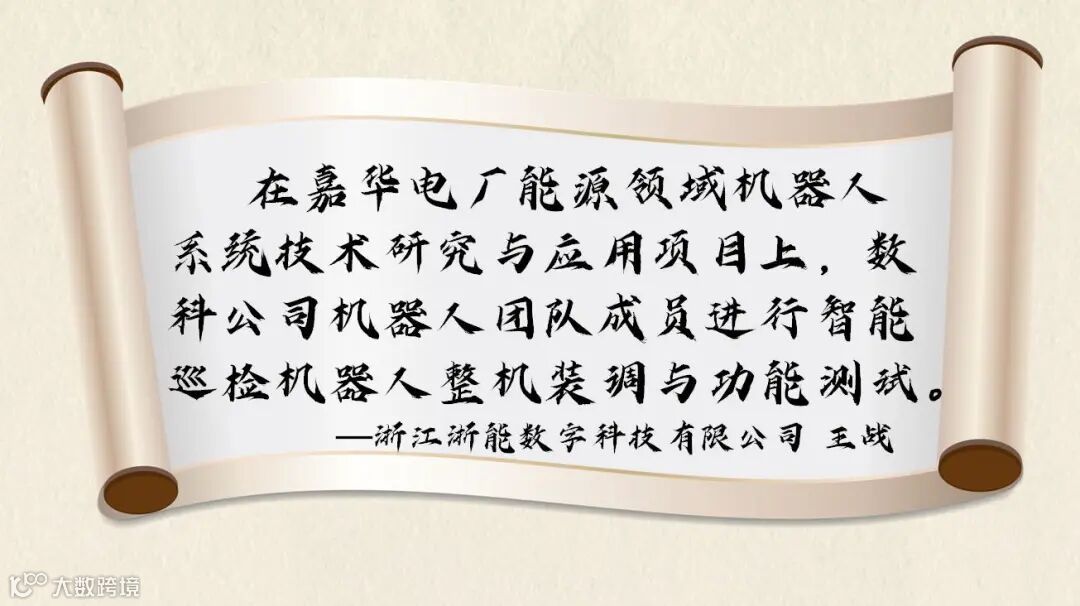 在嘉华电厂能源领域机器人
系统技术研究与应用项目上，数
科公司机器人团队成员进行智能
巡检机器人整机装调与功能测试。
—浙江浙能数字科技有限公司 王战
大数跨境